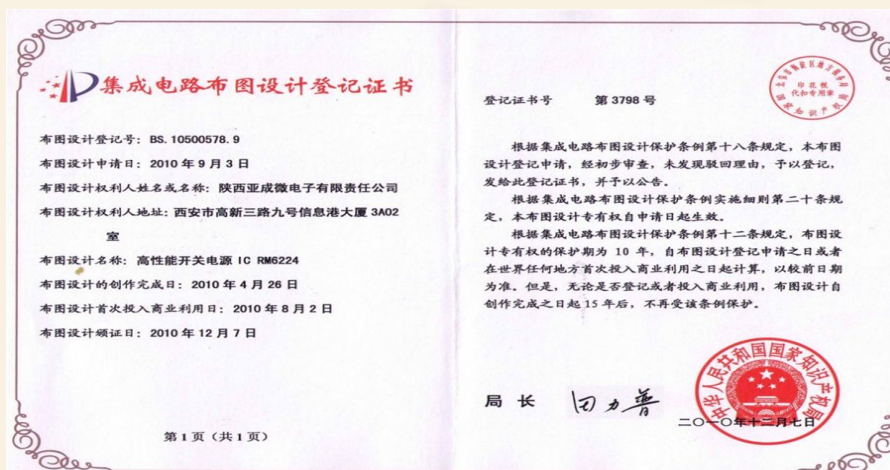 集成电路布图设计登记证书
布图设计登记号: BS.10500578.9
布图设计申请日: 2010年9月3日
布图设计权利人姓名或名称: 陕西亚成微电子有限责任公司
布图设计权利人地址: 西安市高新三路九号信息港大厦3A02
室
布图设计名称: 高性能开关电源IC RM6224
布图设计的创作完成日: 2010年4月26日
布图设计首次投入商业利用日: 2010年8月2日
布图设计颁证日: 2010年12月7日
第1页(共1页)
登记证书号 第3798号
印花税
代扣专用章
国家知识产权局
根据集成电路布图设计保护条例第十八条规定，本布图
设计登记申请，经初步审查，未发现驳回理由，予以登记，
发给此登记证书，并予以公告。
根据集成电路布图设计保护条例实施细则第二十条规
定，本布图设计专有权自申请日起生效。
根据集成电路布图设计保护条例第十二条规定，布图设
计专有权的保护期为10年，自布图设计登记申请之日或者
在世界任何地方首次投入商业利用之日起计算，以较前日期
为准。但是，无论是否登记或者投入商业利用，布图设计自
创作完成之日起15年后，不再受该条例保护。
中华人民共和国国家知识产权局
局长 田力普
二〇一〇年十二月七日